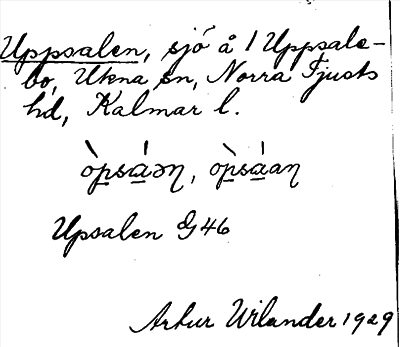 Uppsalen, sjö å 1 Uppsala-
bo, Ukna sn, Norra Tjusts
hd, Kalmar l.
òpsáən, òpsáan
Upsalen G46
Artur Wilander 1929